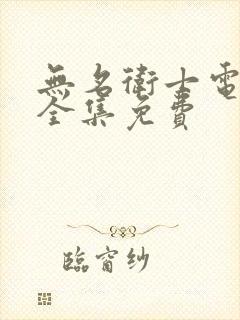 無名衛士電
全集免費
臨窗紗